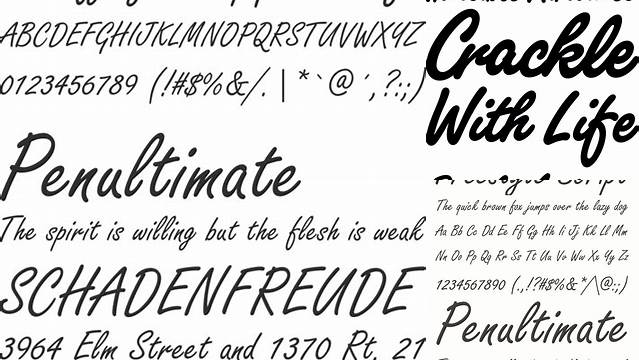 ABCDEFGHIJKLMNOPQRSTUVWXYZ
0123456789 (!#$%&/. | * ` @ ´ , ?:;)
Penultimate
The spirit is willing but the flesh is weak
SCHADENFREUDE
3964 Elm Street and 1370 Rt. 21
Crackle
With Life
Freestyle Script
The quick brown fox jumps over the lazy dog
Aa Bb Cc Dd Ee Ff Gg Hh Ii Jj Kk Ll Mm
Nn Oo Pp Qq Rr Ss Tt Uu Vv Ww Xx Yy Zz
1234567890 (.,!?#$%&*/\@;:)
Penultimate